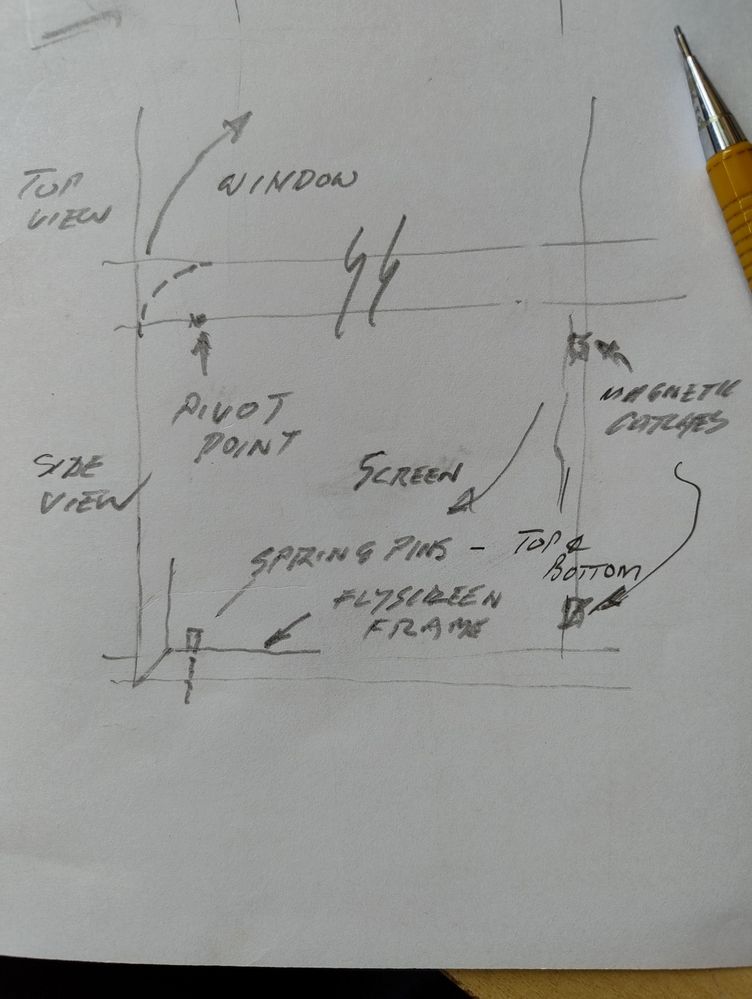 TOP
VIEW
WINDOW
PIVOT
POINT
MAGNETIC
CATCHES
SIDE
VIEW
SCREEN
SPRING PINS - TOP &
BOTTOM
FLYSCREEN
FRAME